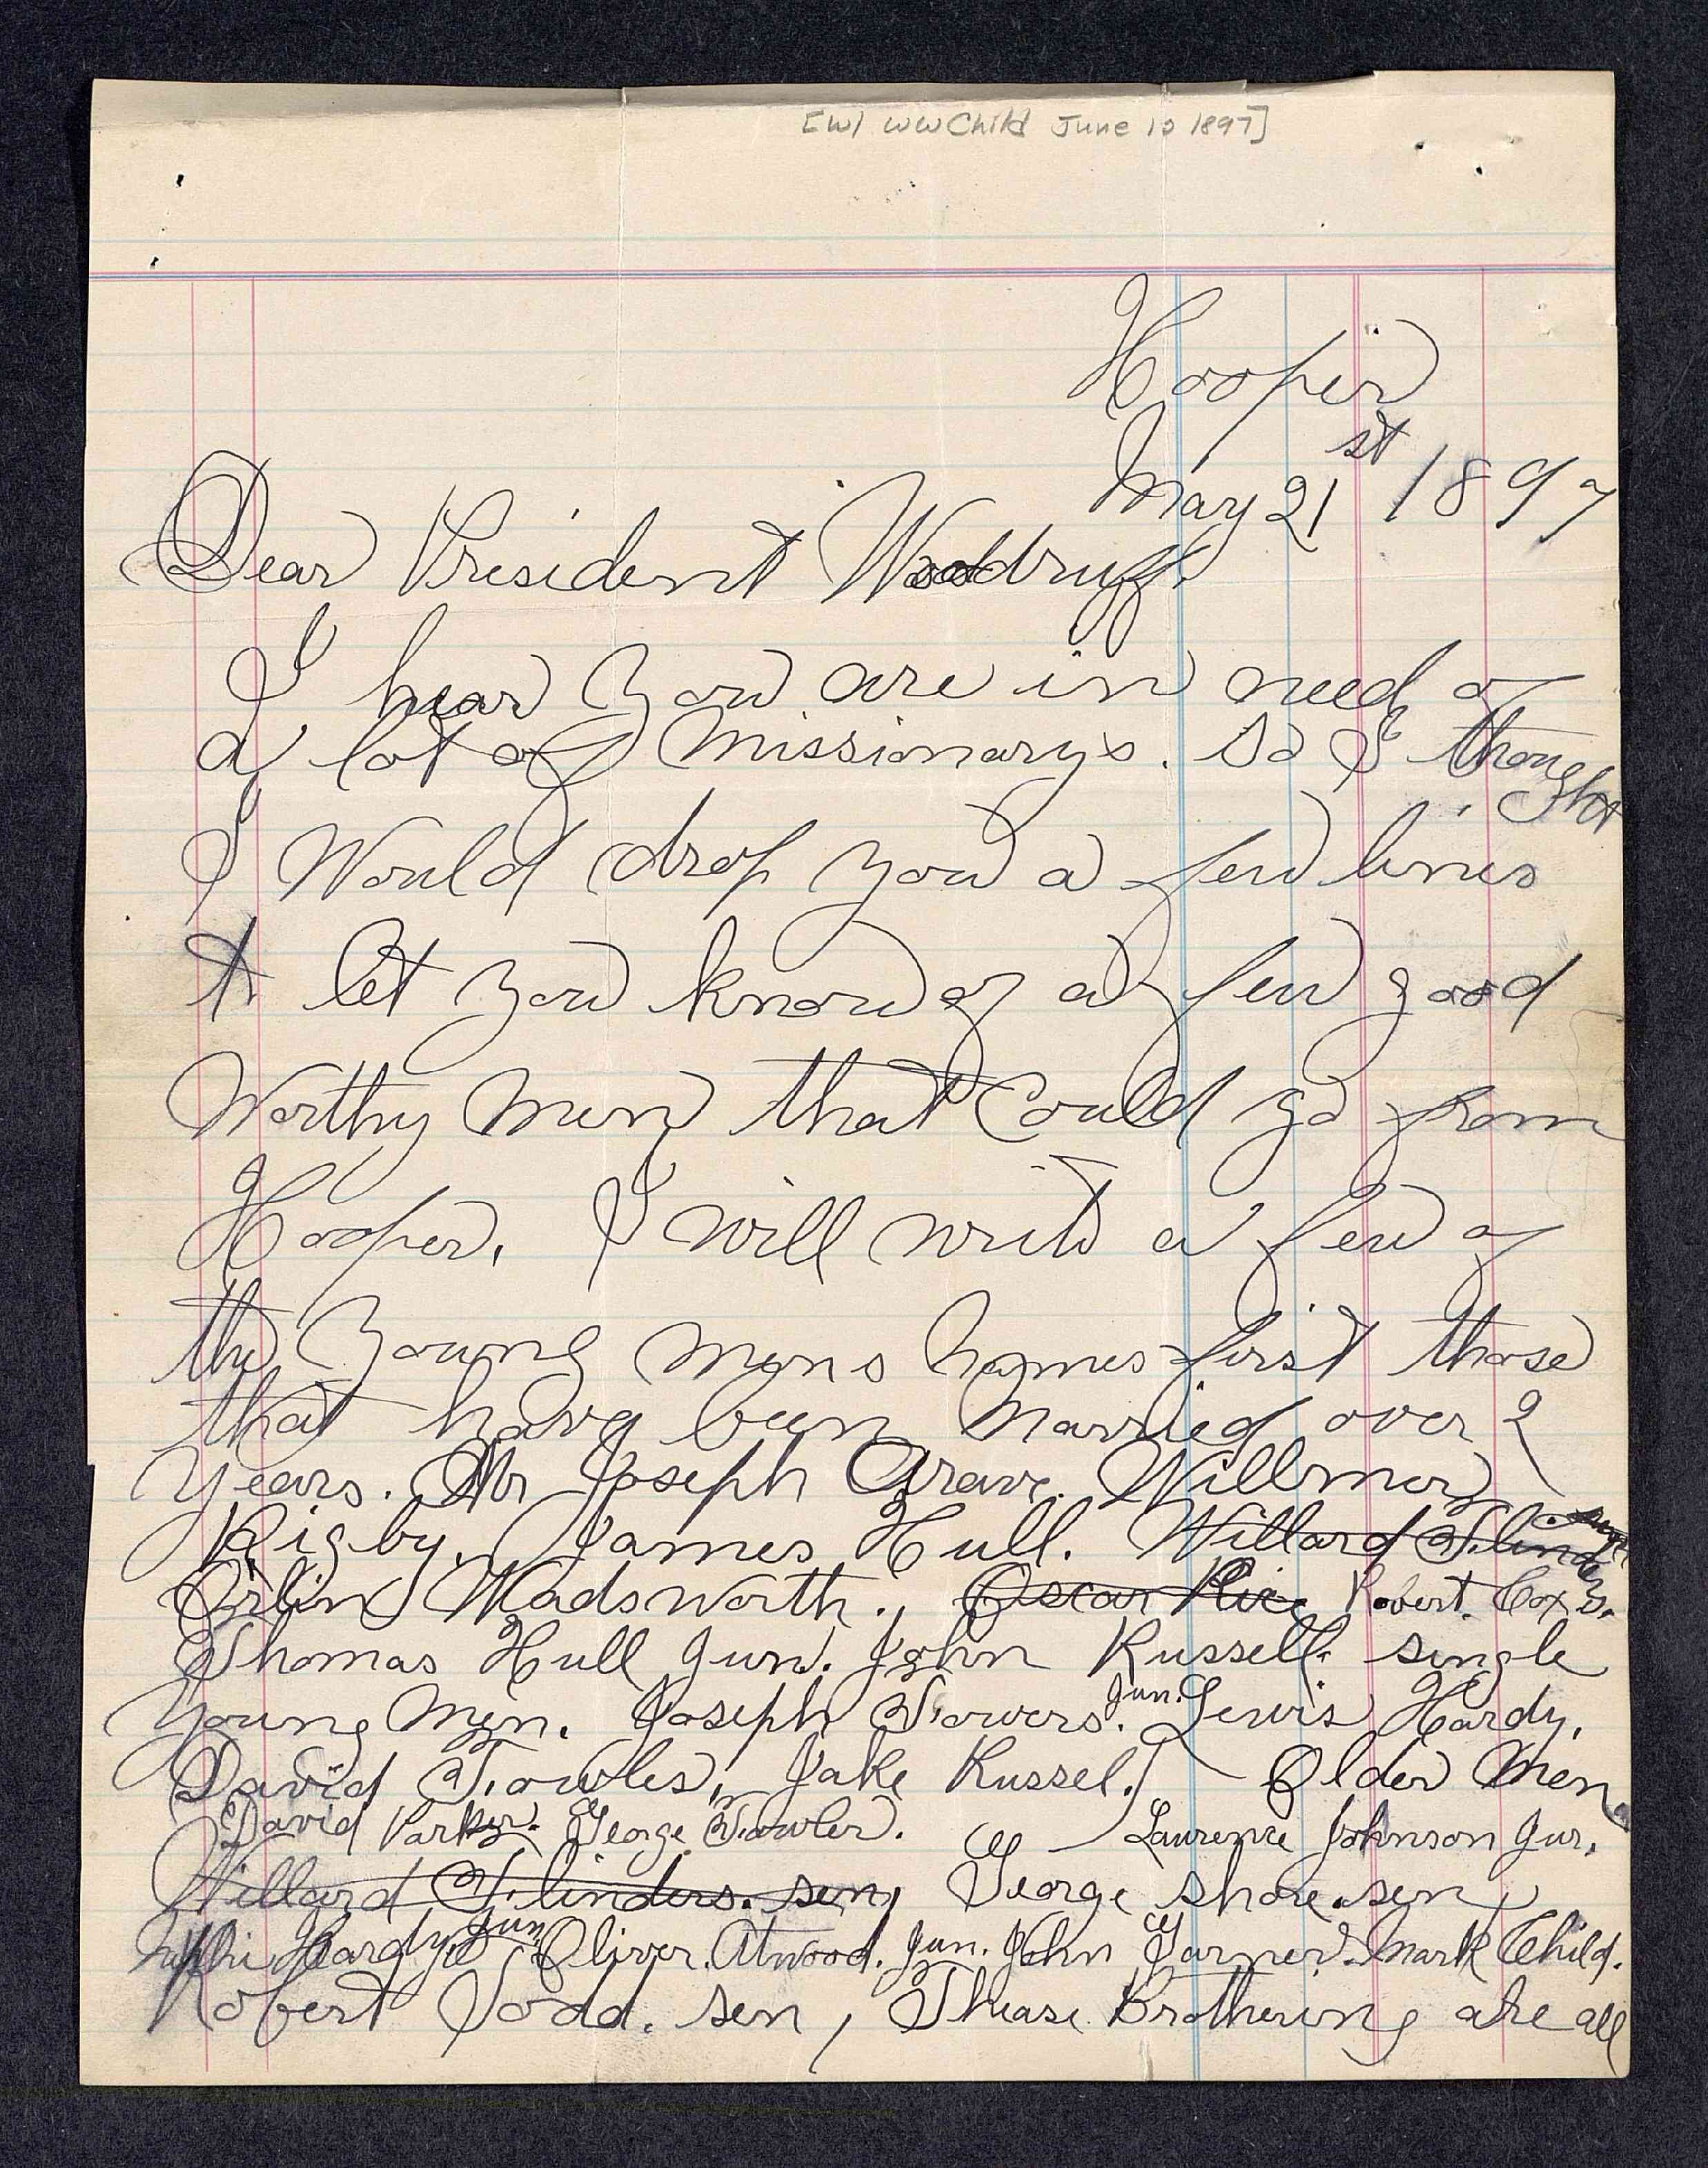 [w/ WW Child June 10 1897]
Hooper
May 21st 1897
Dear President Woodruff.
I hear you are in need of
a lot of Missionarys. So I thought
I Would drop you a few lines
to let you know of a few good
Worthy Men that Could go from
Hooper. I will write a few of
the Young Mens names first those
that have been Married over 2
Years. Mr Joseph Grave. Willmer
Rigby. James Hull. Willard Flinders
Orlin Wadsworth. Oscar Rice Robert. Cox
Thomas Hull Jun. John Russell. single
Young Men. Joseph Fowers. Jun. Lewis Hardy.
David Fowles, Jake Russel. Older Men
David Parker. George Fowler. Laurence Johnson Jur.
Willard Flinders. sen, George Shore. sen,
Nephi Hardy. Jun Oliver. Atwood. Jun. John Garner. Mark Child.
Robert Todd. sen, Thease Brothering are all